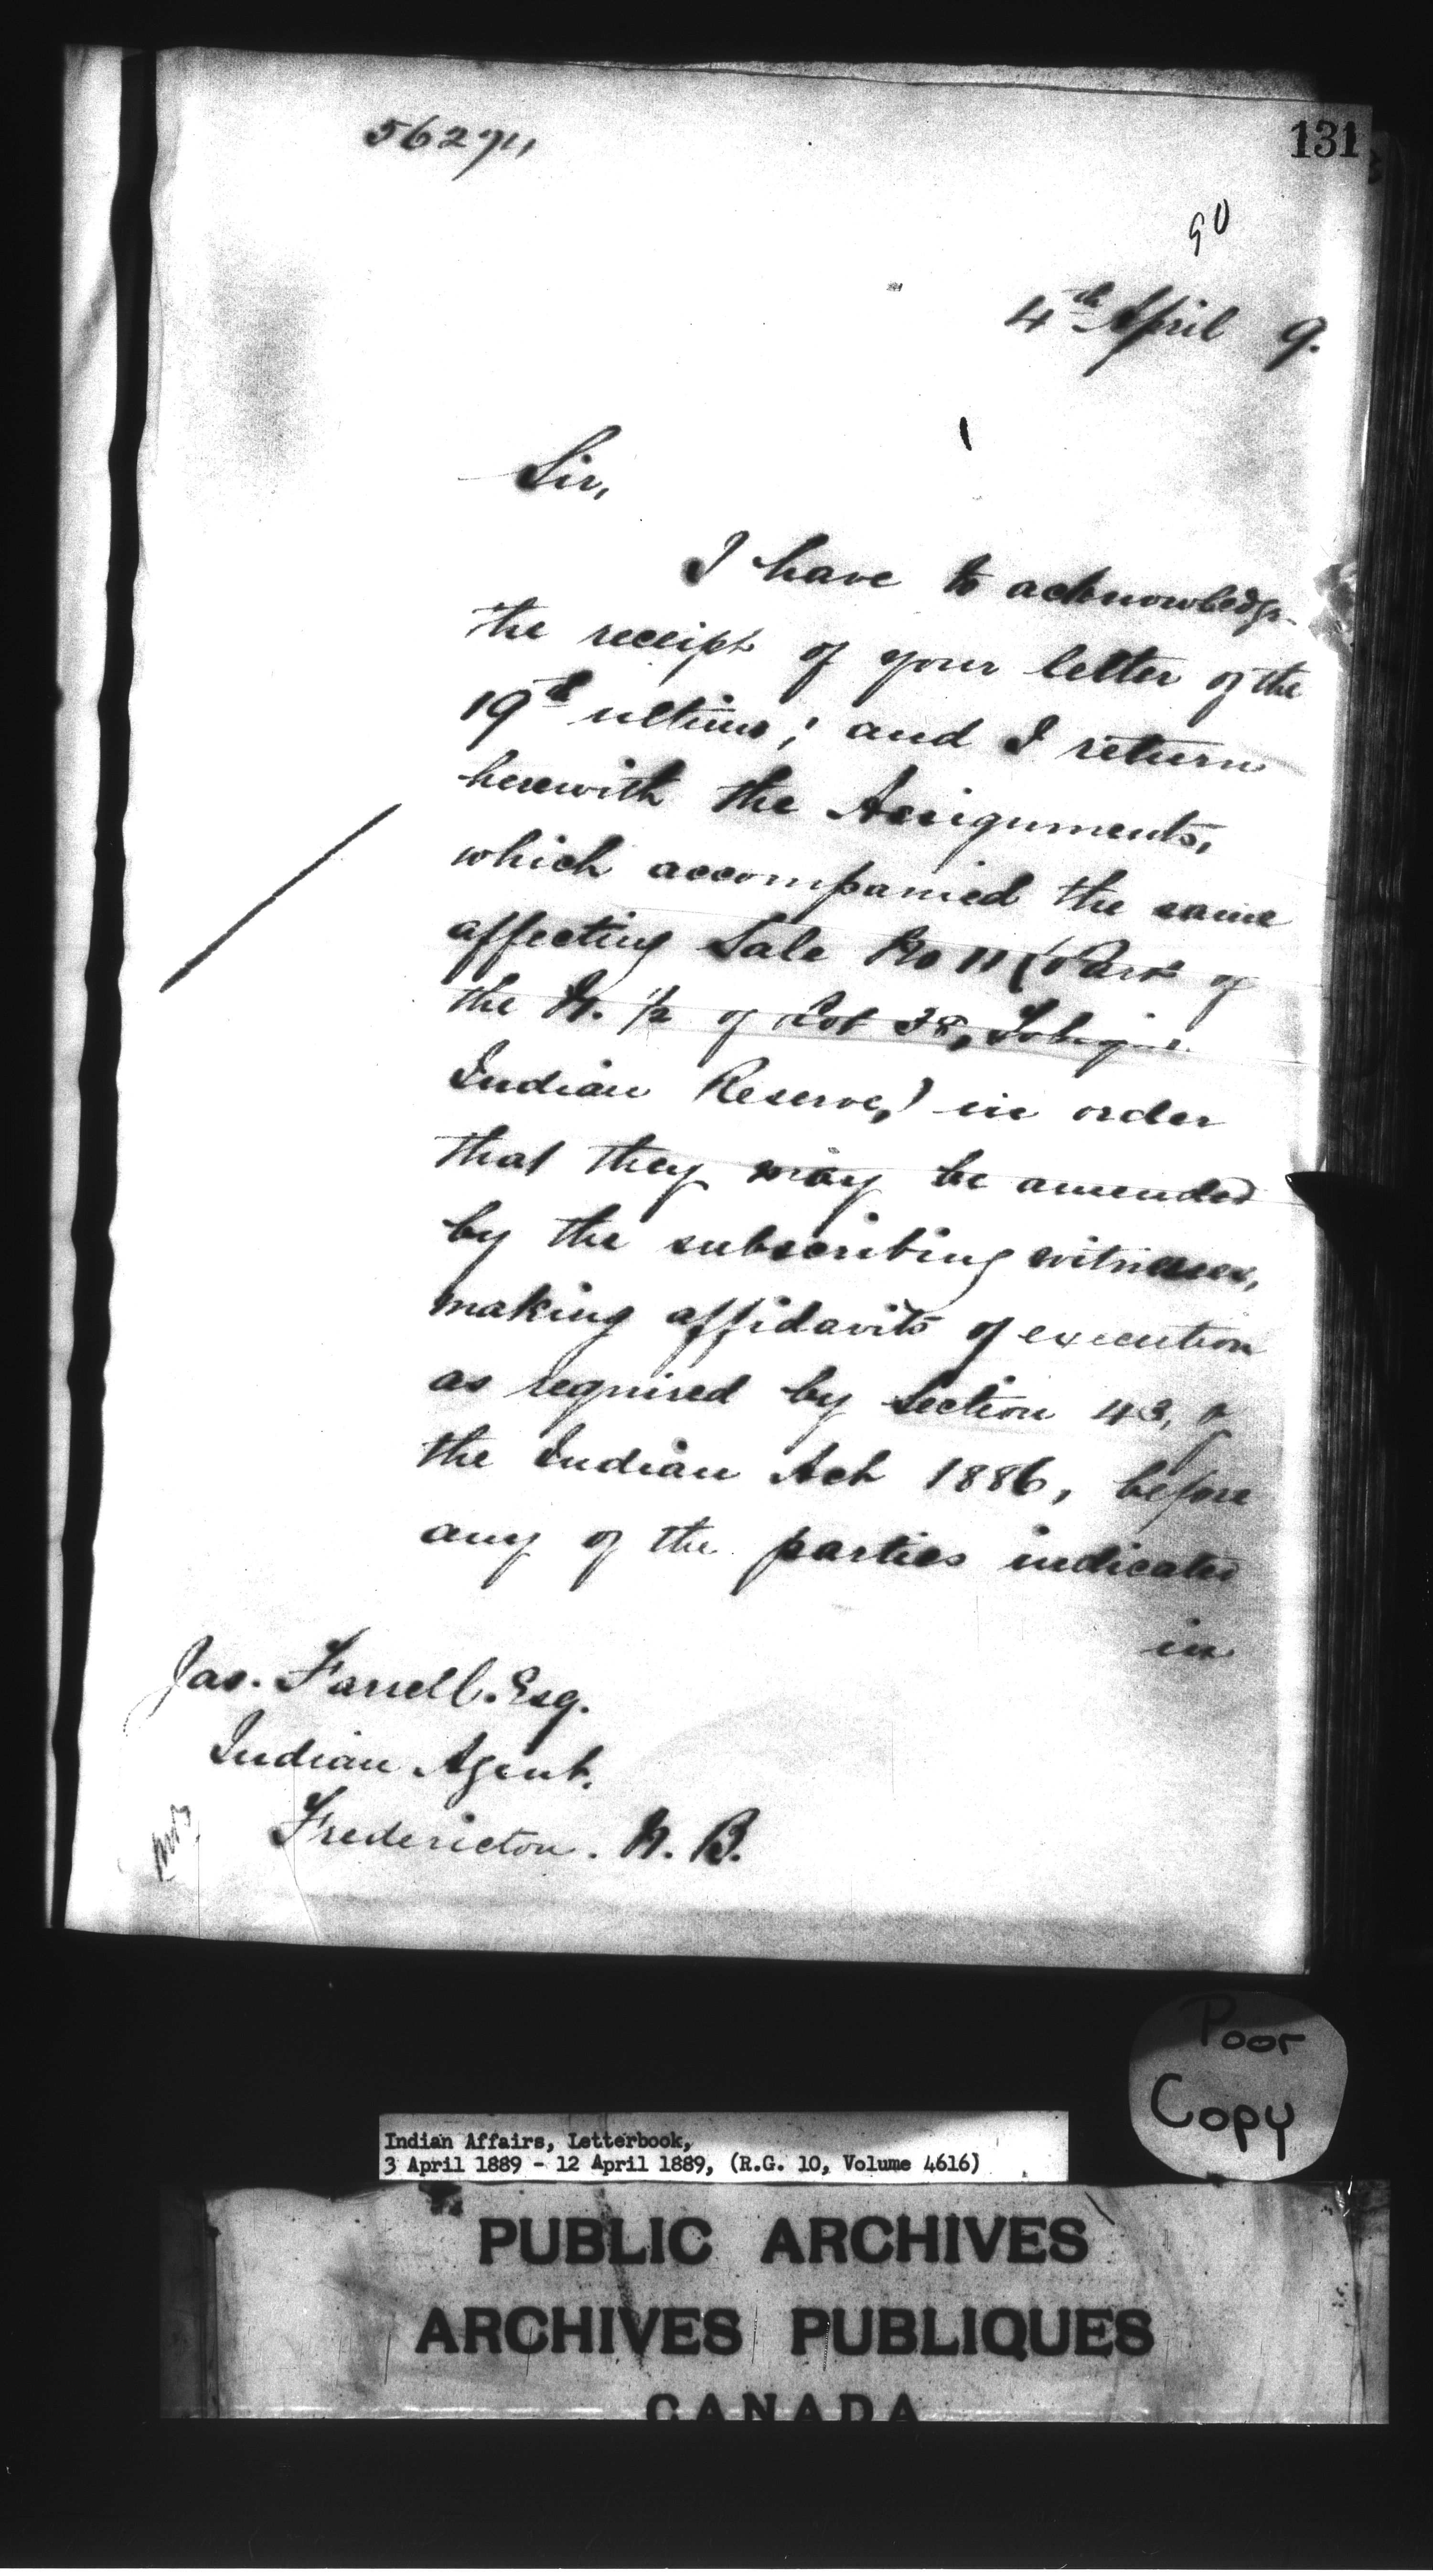 131
90
4th April 9.
Sir,
I have to acknowledge
the receipt of your letter of the
19th ultimo; and I return
herewith the Assignments,
which accompanied the same
affecting Sale No 11 (Part of
the N. ½ of Lot 38, Tobique
Indian Reserve,) in order
that they may be amended
by the subscribing witnesses,
making affidavits of execution
as required by Section 43, of
the Indian Act 1886, before
any of the parties indicated
in
Jas. Farrell. Esq.
Indian Agent.
Fredericton. N. B.
Poor
Copy
Indian Affairs, Letterbook,
3 April 1889 - 12 April 1889, (R.G. 10, Volume 4616)
PUBLIC ARCHIVES
ARCHIVES PUBLIQUES
CANADA